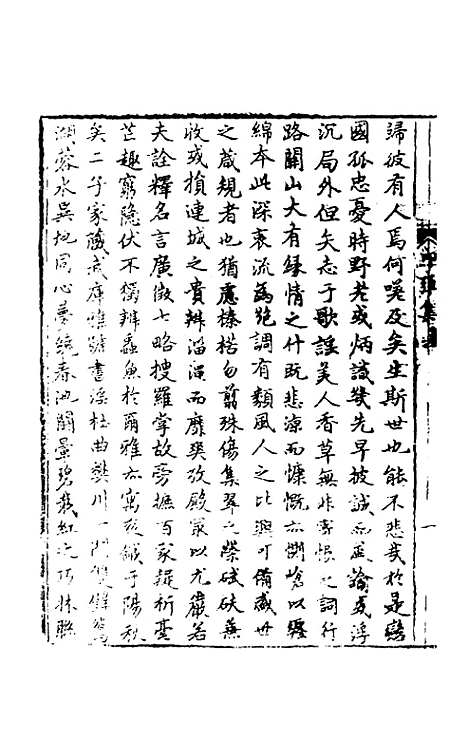 歸彼有人焉何嗟及矣生斯世也能不悲哉於是戀
國孤忠憂時野老或炳識幾先早披誠而莫諭或浮
沉局外但矢志于歌謠美人香草無非寄恨之詞行
路關山大有緣情之什既悲涼而慷慨亦惻愴以纏
綿本此深衷流為艷調有類風人之比興可備盛世
之箴規者也猶應榛楛勿翦殊傷集翠之榮碔砆兼
收或損連城之貴辨淄澠而靡爽攷殿最以尤嚴若
夫詮釋名言廣徵七略搜羅掌故旁摭百家疑析臺
芒趣窮隱伏不獨辨蟲魚於爾雅亦寓袞鉞于陽秋
矣二子家藏武庫雅號書淫杜曲樊川一門雙
湖蓉水吳地同心夢繞春池鬬碧栽紅之巧